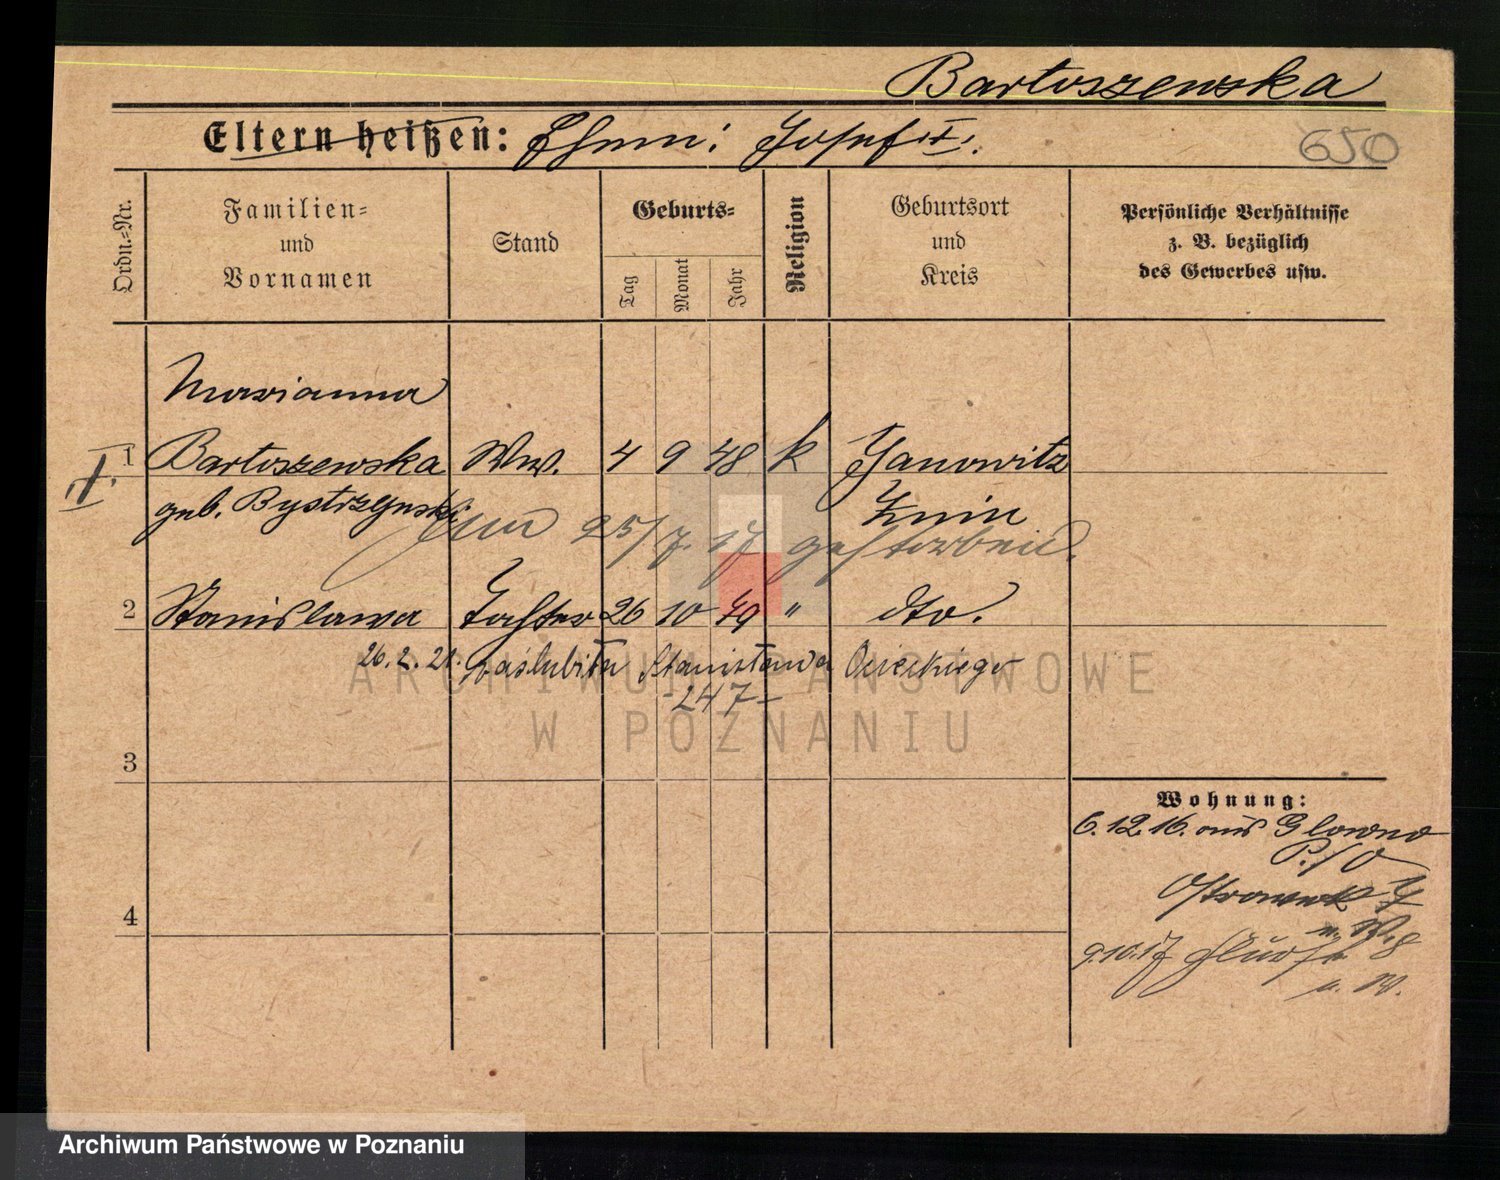 Bartoszewska
Eltern heißen: Ehem: Josef †.
650
Ordn.-Nr.
Familien-
und
Vornamen
Stand
Geburts-
Tag
Monat
Jahr
Religion
Geburtsort
und
Kreis
Persönliche Verhältnisse
z. B. bezüglich
des Gewerbes usw.
Marianna
†. 1 Bartoszewska Ww. 4 9 48 k Janowitz
geb. Bystrzynski Znin
am 25/7. 17 gestorben.
2 Stanislawa Tochter 26 10 79 " dto.
26.2.21. zaślubiła Stanisława
-247-
3
4
Wohnung:
6.12.16. aus Glowno
P./O
9.10.17
u. W.
ARCHIWUM PAŃSTWOWE
W POZNANIU
Archiwum Państwowe w Poznaniu